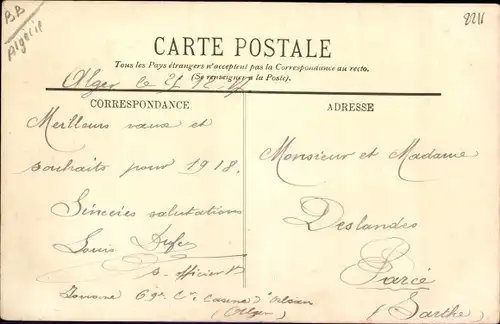 BB
Algérie
2211
CARTE POSTALE
Tous les Pays étrangers n'acceptent pas la Correspondance au recto.
(Se renseigner à la Poste).
Alger le 27.12.17
CORRESPONDANCE
Meilleurs vœux et
souhaits pour 1918.
Sincères salutations
Louis
s-officier
6e Caserne d'Orléans
(Alger)
ADRESSE
Monsieur et Madame
Deslandes
Parcé
(Sarthe)